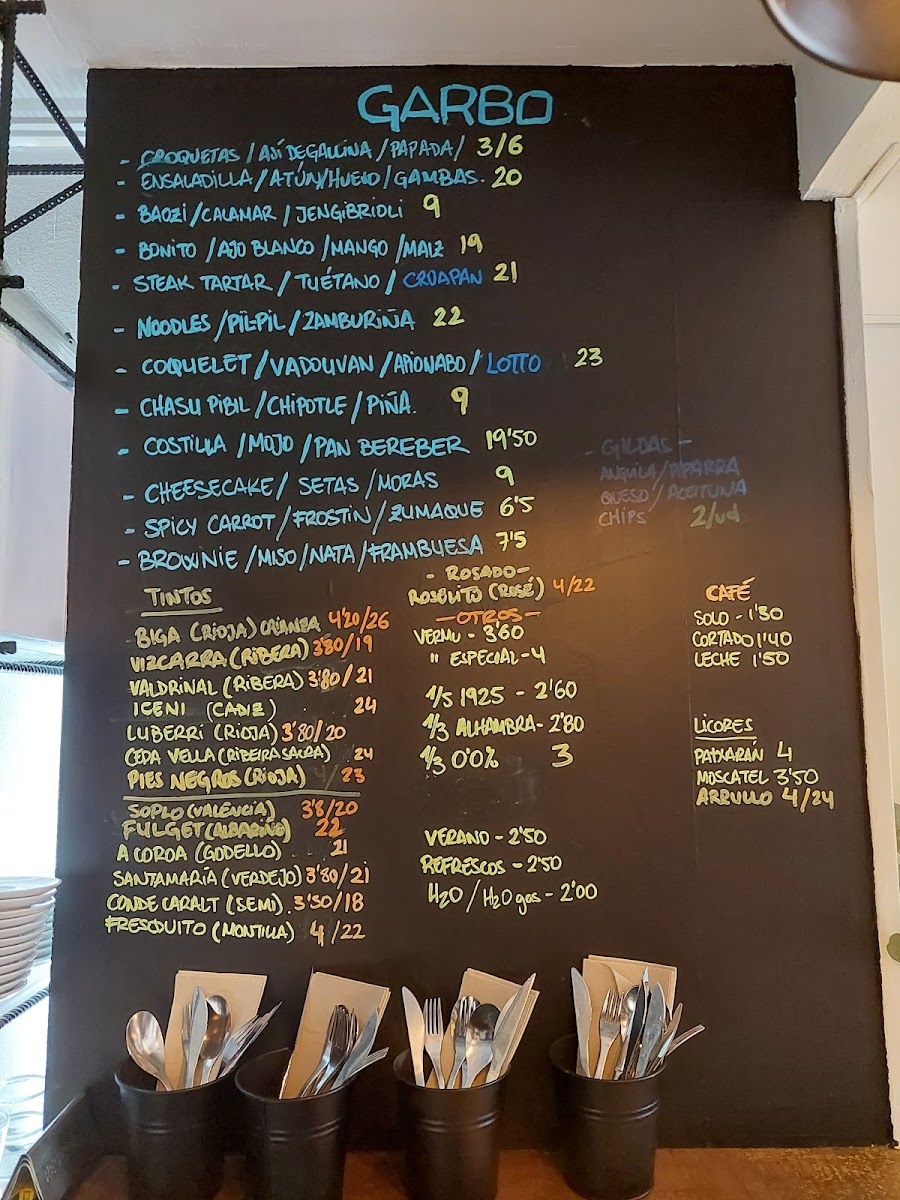 GARBO
- CROQUETAS / AJÍ DE GALLINA / PAPADA / 3/6
- ENSALADILLA / ATÚN / HUEVO / GAMBAS. 20
- BAOZI / CALAMAR / JENGIBRIOLI 9
- BONITO / AJO BLANCO / MANGO / MAIZ 19
- STEAK TARTAR / TUÉTANO / CROAPAN 21
- NOODLES / PIL-PIL / ZAMBURIÑA 22
- COQUELET / VADOUVAN / APIONABO / LOTTO 23
- CHASU PIBIL / CHIPOTLE / PIÑA. 9
- COSTILLA / MOJO / PAN BEREBER 19'50
- CHEESECAKE / SETAS / MORAS 9
- SPICY CARROT / FROSTIN / ZUMAQUE 6'5
- BROWNIE / MISO / NATA / FRAMBUESA 7'5
- GILDAS -
ANGUILA / PIPARRA
QUESO / ACEITUNA
CHIPS 2/ud
TINTOS
BIGA (RIOJA) CRIANZA 4'20/26
VIZCARRA (RIBERA) 3'80/19
VALDRINAL (RIBERA) 3'80/21
ICENI (CADIZ) 24
LUBERRI (RIOJA) 3'80/20
CEDA VELLA (RIBEIRA SACRA) 24
PIES NEGROS (RIOJA) 4/23
SOPLO (VALENCIA) 3'8/20
FULGET (ALBARIÑO) 22
A COROA (GODELLO) 21
SANTAMARÍA (VERDEJO) 3'80/21
CONDE CARALT (SEMI). 3'50/18
FRESQUITO (MONTILLA) 4/22
- ROSADO -
ROSÉLITO (ROSÉ) 4/22
- OTROS -
VERMU - 3'60
" ESPECIAL - 4
1/5 1925 - 2'60
1/3 ALHAMBRA - 2'80
1/3 0'0% 3
VERANO - 2'50
REFRESCOS - 2'50
H2O / H2O gas - 2'00
CAFÉ
SOLO - 1'30
CORTADO 1'40
LECHE 1'50
LICORES
PATXARÁN 4
MOSCATEL 3'50
ARRULLO 4/24